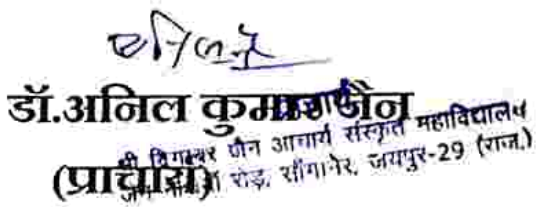 डॉ.अनिल कुमार जैन
प्राचार्य
श्री दिगम्बर जैन आचार्य संस्कृत महाविद्यालय
(प्राचार्य)
रोड़, साँगानेर, जयपुर-29 (राज.)